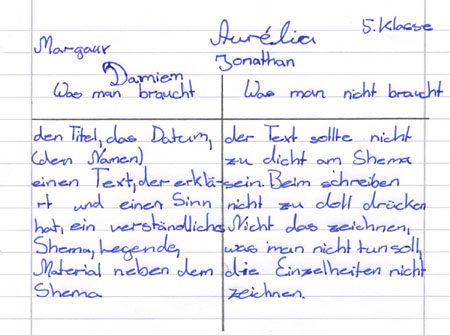 Margaux Aurélia 5. Klasse
Damien Jonathan
Was man braucht
Was man nicht braucht
den Titel, das Datum,
(den Namen)
einen Text, der erklä-
rt und einen Sinn
hat, ein verständliches
Shema, Legende,
Material neben dem
Shema
der Text sollte nicht
zu dicht am Shema
sein. Beim schreiben
nicht zu doll drücken
Nicht das zeichnen,
was man nicht tun soll,
die Einzelheiten nicht
zeichnen.